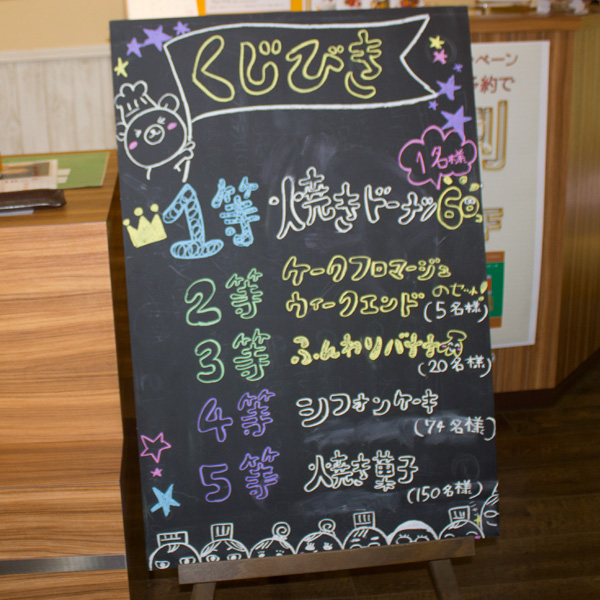 くじびき
1名様
1等 焼きドーナツ6個
2等 ケークフロマージュ
ウィークエンド
(5名様)
3等 ふんわりバナナ
(20名様)
4等 シフォンケーキ
(74名様)
5等 焼き菓子
(150名様)